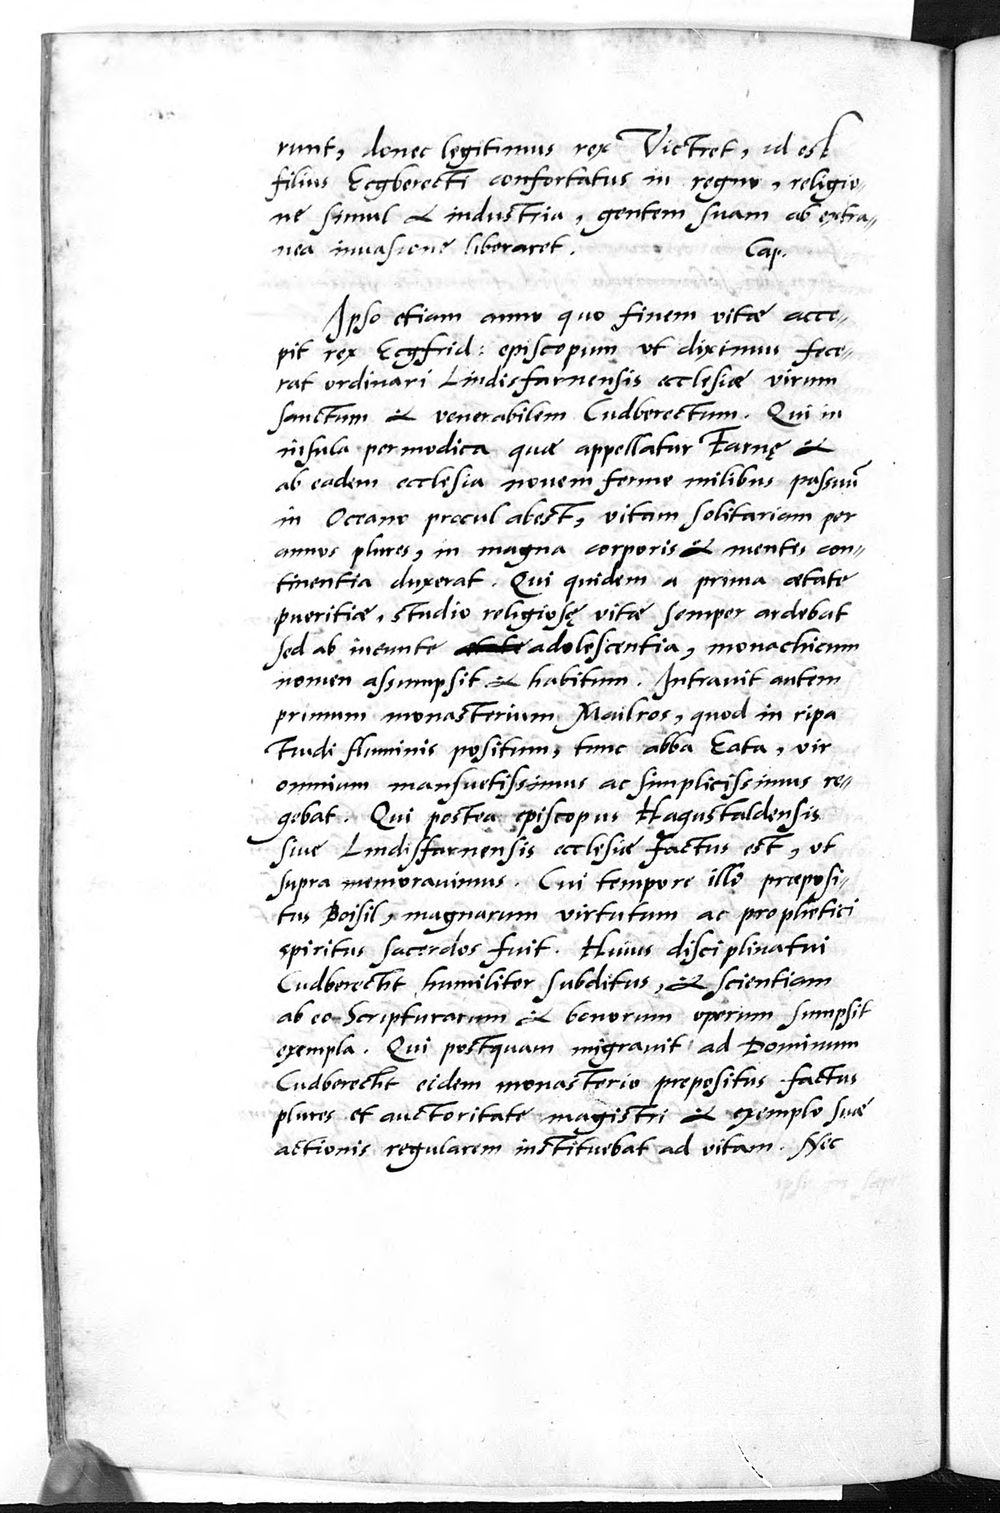 runt, donec legitimus rex Victret, id est
filius Ecgberecti confortatus in regno, religio-
ne simul & industria, gentem suam ab extra-
nea invasione liberaret. Cap.
Ipso etiam anno quo finem vitæ acce-
pit rex Ecgfrid: episcopum ut diximus fece-
rat ordinari Lindisfarnensis ecclesiæ virum
sanctum & venerabilem Cudberectum. Qui in
insula permodica quæ appellatur Farnę &
ab eadem ecclesia novem ferme milibus passuũ
in Oceano procul abest, vitam solitariam per
annos plures, in magna corporis & mentis con-
tinentia duxerat. Qui quidem a prima ætate
pueritiæ, studio religiosę vitæ semper ardebat
sed ab ineunte adolescentia, monachicum
nomen assumpsit & habitum. Intravit autem
primum monasterium Mailros, quod in ripa
Tuidi fluminis positum, tunc abba Eata, vir
omnium mansuetissimus ac simplicissimus re-
gebat. Qui postea episcopus Hagustaldensis
sive Lindisfarnensis ecclesiæ factus est, ut
supra memoravimus. Cui tempore illo præposi-
tus Boisil, magnarum virtutum ac prophetici
spiritus sacerdos fuit. Huius disciplinatui
Cudberecht humiliter subditus, & scientiam
ab eo Scripturarum & bonorum operum sumpsit
exempla. Qui postquam migravit ad Dominum
Cudberecht eidem monasterio prepositus factus
plures et auctoritate magistri & exemplo suæ
actionis regularem instituebat ad vitam. Nec